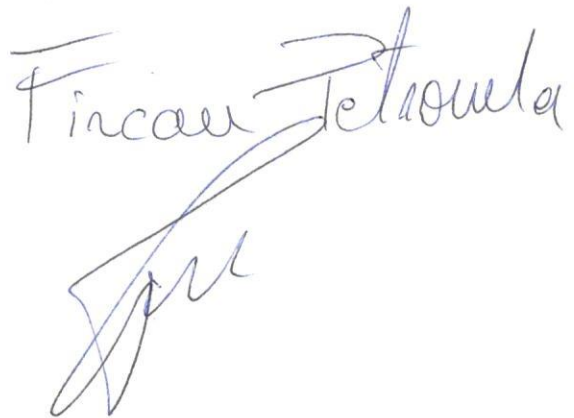 Fircau Petronela